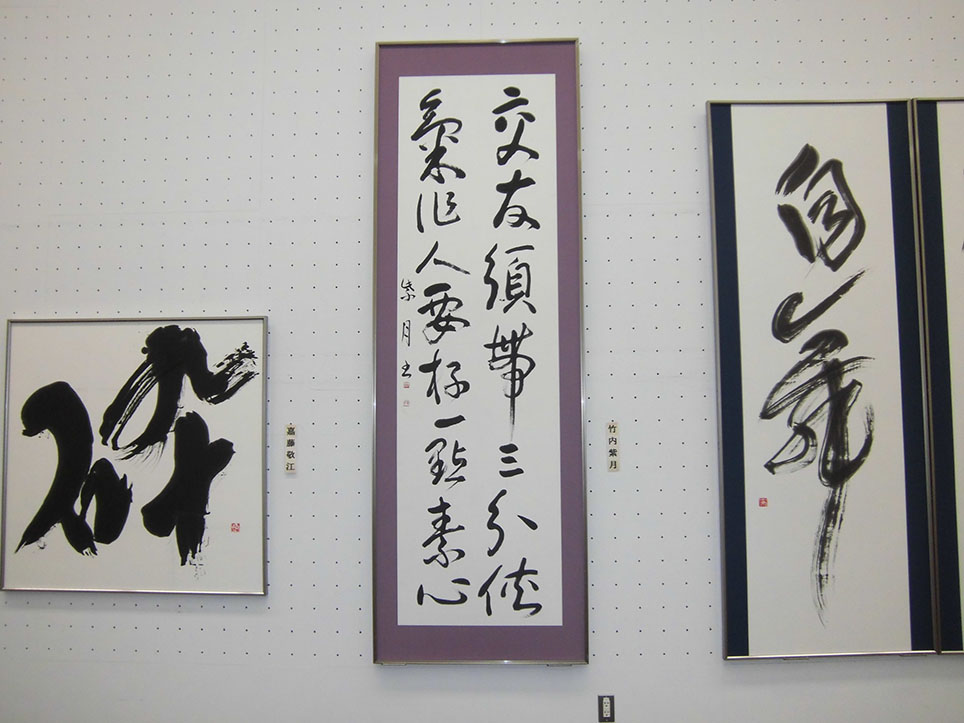 交友須帶三分俠
氣作人要存一點素心
紫月書
嘉藤敬江
竹内紫月